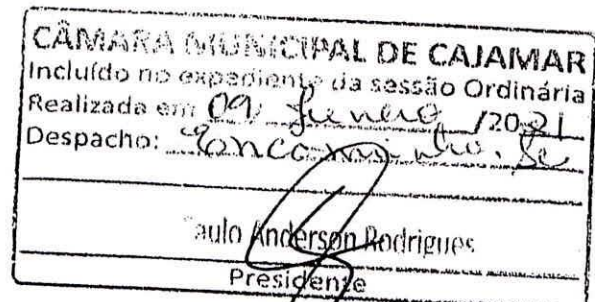 CÂMARA MUNICIPAL DE CAJAMAR
Incluído no expediente da sessão Ordinária
Realizada em 09 /2021
Despacho:
Paulo Anderson Rodrigues
Presidente